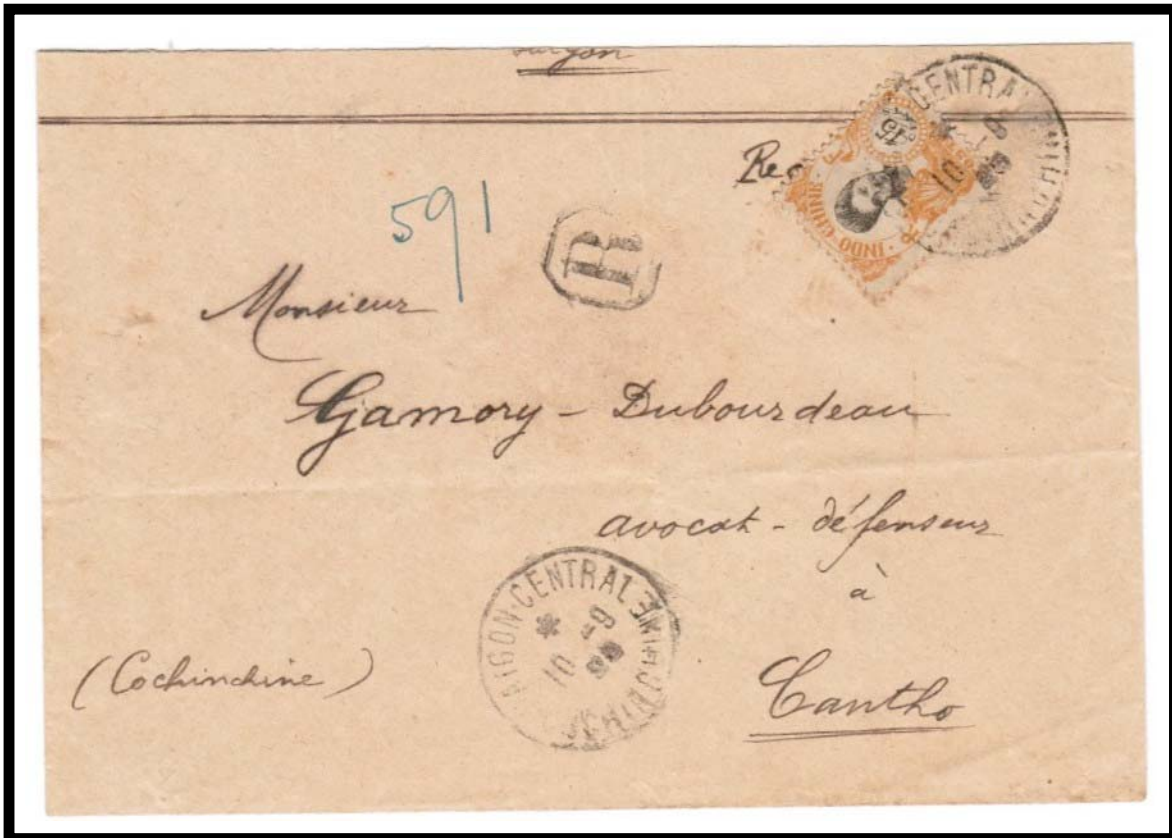 Saigon
Re
CENTRAL
10 -9
INDO-CHINE
45
591
R
Monsieur
Gamory-Dubourdeau
avocat-défenseur
à
Cantho
(Cochinchine)
SAIGON-CENTRAL
10 -9
COCHINCHINE